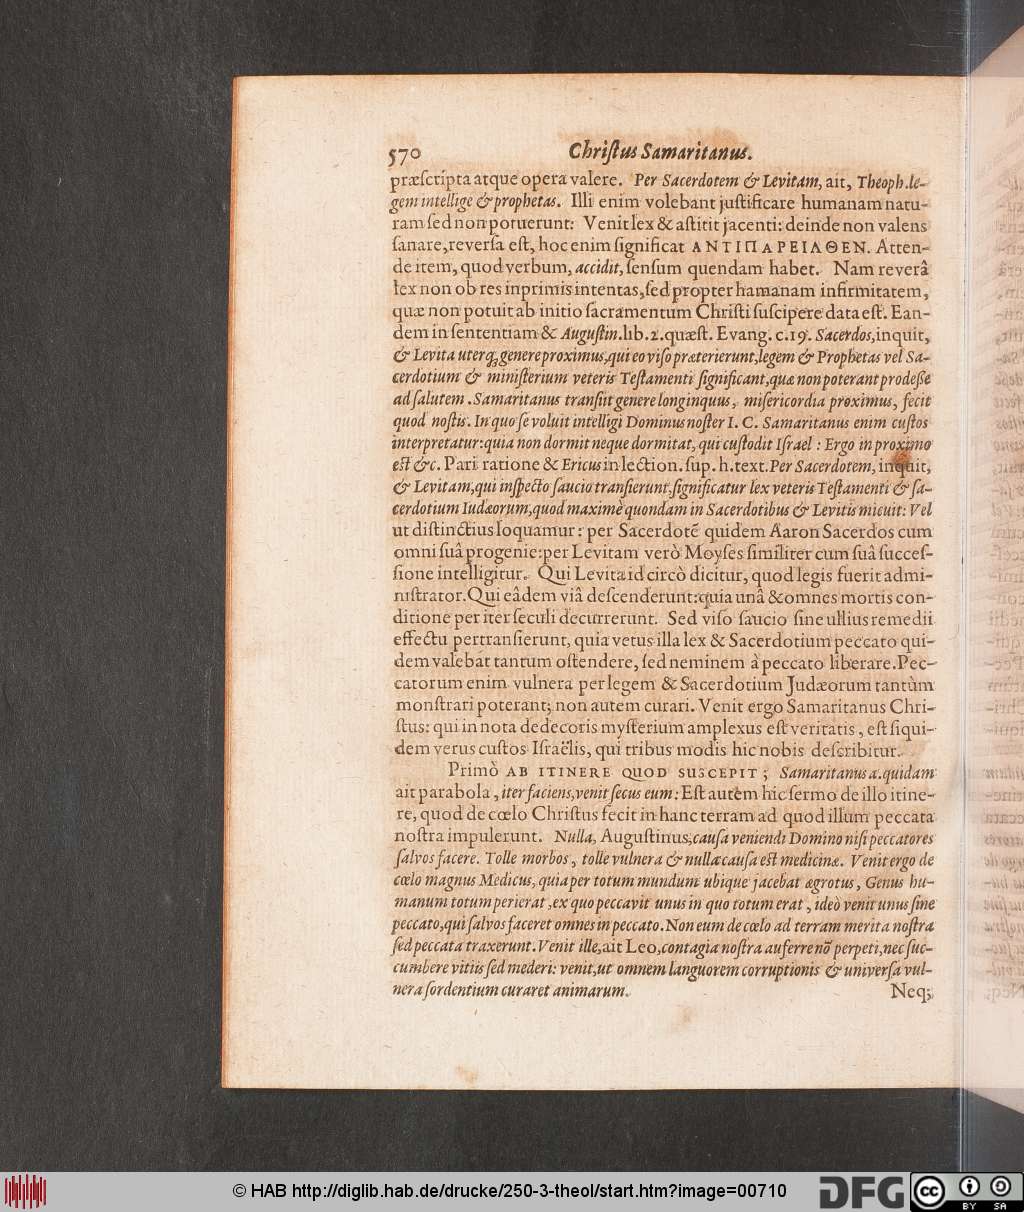 570 Chriſtus Samaritanus.
præſcripta atque opera valere. Per Sacerdotem & Levitam, ait, Theoph. le-
gem intellige & prophetas. Illi enim volebant juſtificare humanam natu-
ram ſed non potuerunt: Venit lex & aſtitit jacenti: deinde non valens
ſanare, reverſa eſt, hoc enim ſignificat ΑΝΤΙΠΑΡΕΙΛΘΕΝ. Atten-
de item, quod verbum, accidit, ſenſum quendam habet. Nam reverâ
lex non ob res inprimis intentas, ſed propter hamanam infirmitatem,
quæ non potuit ab initio ſacramentum Chriſti ſuſcipere data eſt. Ean-
dem in ſententiam & Auguſtin. lib. 2. quæſt. Evang. c. 19. Sacerdos, inquit,
& Levita uterq; genere proximus, qui eo viſo præterierunt, legem & Prophetas vel Sa-
cerdotium & miniſterium veteris Teſtamenti ſignificant, quæ non poterant prodeſſe
ad ſalutem. Samaritanus tranſiit genere longinquus, miſericordia proximus, fecit
quod noſtis. In quo ſe voluit intelligi Dominus noſter I. C. Samaritanus enim cuſtos
interpretatur: quia non dormit neque dormitat, qui cuſtodit Iſrael: Ergo in proximo
eſt &c. Pari ratione & Ericus in lection. ſup. h. text. Per Sacerdotem, inquit,
& Levitam, qui inſpecto ſaucio tranſierunt, ſignificatur lex veteris Teſtamenti & ſa-
cerdotium Iudæorum, quod maximè quondam in Sacerdotibus & Levitis micuit: Vel
ut diſtinctius loquamur: per Sacerdotē quidem Aaron Sacerdos cum
omni ſuâ progenie: per Levitam verò Moyſes ſimiliter cum ſuâ ſucceſ-
ſione intelligitur. Qui Levita id circò dicitur, quod legis fuerit admi-
niſtrator. Qui eâdem viâ deſcenderunt: quia unâ & omnes mortis con-
ditione per iter ſeculi decurrerunt. Sed viſo ſaucio ſine ullius remedii
effectu pertranſierunt, quia vetus illa lex & Sacerdotium peccato qui-
dem valebat tantum oſtendere, ſed neminem à peccato liberare. Pec-
catorum enim vulnera per legem & Sacerdotium Judæorum tantùm
monſtrari poterant; non autem curari. Venit ergo Samaritanus Chri-
ſtus: qui in nota dedecoris myſterium amplexus eſt veritatis, eſt ſiqui-
dem verus cuſtos Iſraëlis, qui tribus modis hic nobis deſcribitur.
Primò AB ITINERE QUOD SUSCEPIT; Samaritanus a. quidam
ait parabola, iter faciens, venit ſecus eum: Eſt autem hic ſermo de illo itine-
re, quod de cœlo Chriſtus fecit in hanc terram ad quod illum peccata
noſtra impulerunt. Nulla, Auguſtinus, cauſa veniendi Domino niſi peccatores
ſalvos facere. Tolle morbos, tolle vulnera & nulla cauſa eſt medicinæ. Venit ergo de
cœlo magnus Medicus, quia per totum mundum ubique jacebat ægrotus, Genus hu-
manum totum perierat, ex quo peccavit unus in quo totum erat, ideò venit unus ſine
peccato, qui ſalvos faceret omnes in peccato. Non eum de cœlo ad terram merita noſtra
ſed peccata traxerunt. Venit ille, ait Leo, contagia noſtra auferre nō perpeti, nec ſuc-
cumbere vitiis ſed mederi: venit, ut omnem languorem corruptionis & univerſa vul-
nera ſordentium curaret animarum.
Neq;
© HAB http://diglib.hab.de/drucke/250-3-theol/start.htm?image=00710
DFG
cc BY SA